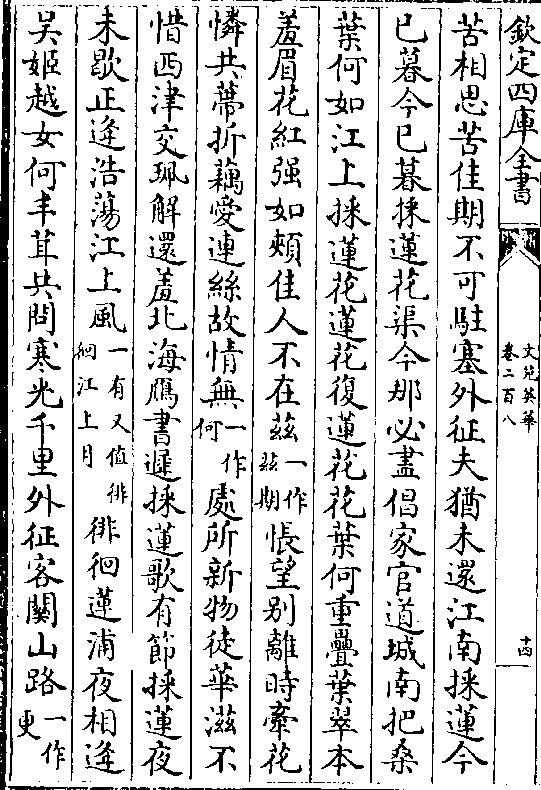 欽定四庫全書
文苑英華
卷二百八
十四
苦相思苦佳期不可駐塞外征夫猶未還江南採蓮今
已暮今已暮採蓮花渠今那必盡倡家官道城南把桑
葉何如江上採蓮花蓮花復蓮花花葉何重疊葉翠本
羞眉花紅强如頰佳人不在兹一作兹期悵望别離時牽花
憐共蔕折藕愛連絲故情無一作何處所新物徒華滋不
惜西津交珮解還羞北海鴈書遲採蓮歌有節採蓮夜
未歇正逢浩蕩江上風一有又值徘徊江上月徘徊蓮浦夜相逢
吴姬越女何丰茸共問寒光千里外征客關山路一作更